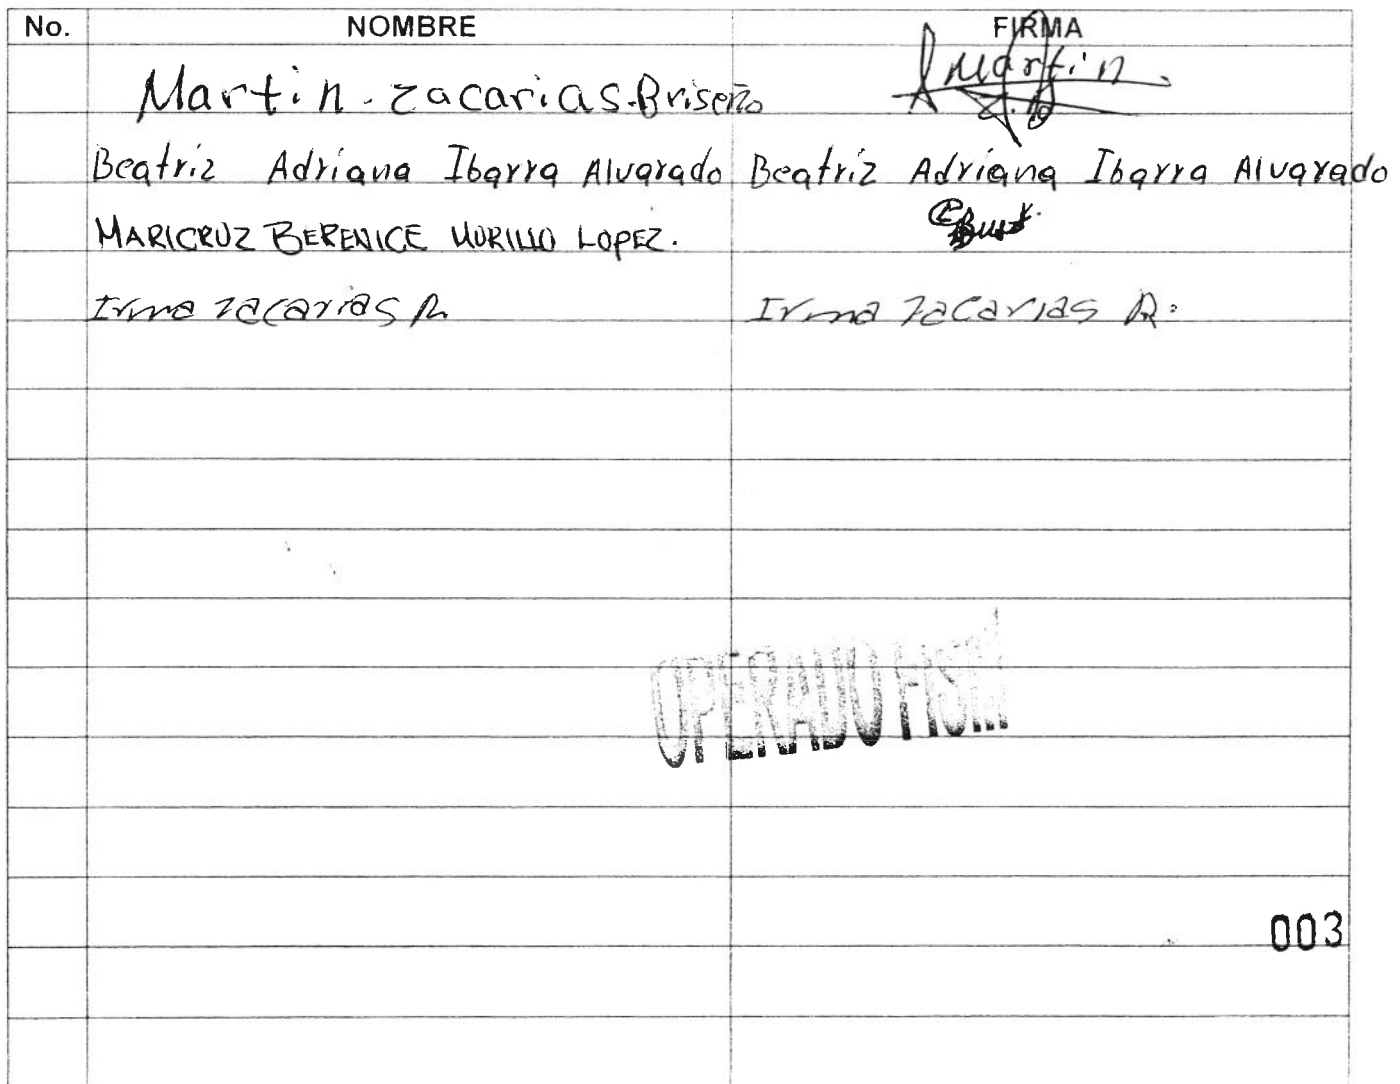 No. NOMBRE FIRMA
Martin. zacarias. Briseño Martin
Beatriz Adriana Ibarra Alvarado Beatriz Adriana Ibarra Alvarado
MARICRUZ BERENICE MURILLO LOPEZ.
Irma zacarias R. Irma zacarias R.
OPERADO FISM
003